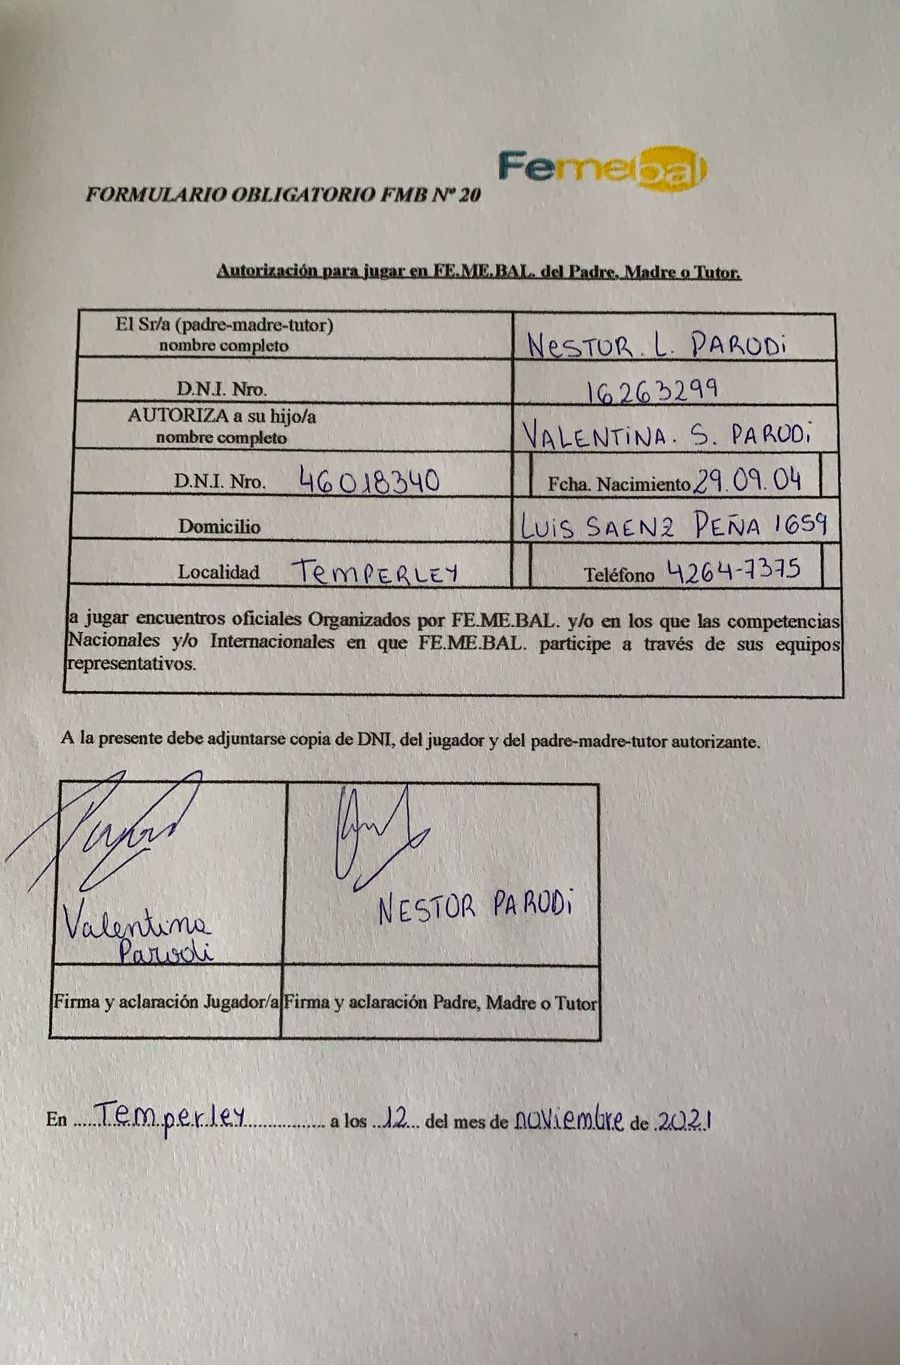 Femebal
FORMULARIO OBLIGATORIO FMB Nº 20
Autorización para jugar en FE.ME.BAL. del Padre, Madre o Tutor.
El Sr/a (padre-madre-tutor)
nombre completo
NESTOR. L. PARODi
D.N.I. Nro.
16263299
AUTORIZA a su hijo/a
nombre completo
VALENTiNA. S. PARODi
D.N.I. Nro. 46018340
Fcha. Nacimiento 29.09.04
Domicilio
LUiS SAENZ PEÑA 1659
Localidad TEMPERLEY
Teléfono 4264-7375
a jugar encuentros oficiales Organizados por FE.ME.BAL. y/o en los que las competencias
Nacionales y/o Internacionales en que FE.ME.BAL. participe a través de sus equipos
representativos.
A la presente debe adjuntarse copia de DNI, del jugador y del padre-madre-tutor autorizante.
Valentina
Parodi
NESTOR PARODi
Firma y aclaración Jugador/a
Firma y aclaración Padre, Madre o Tutor
En ....Temperley............... a los ..12... del mes de noviembre de .2021